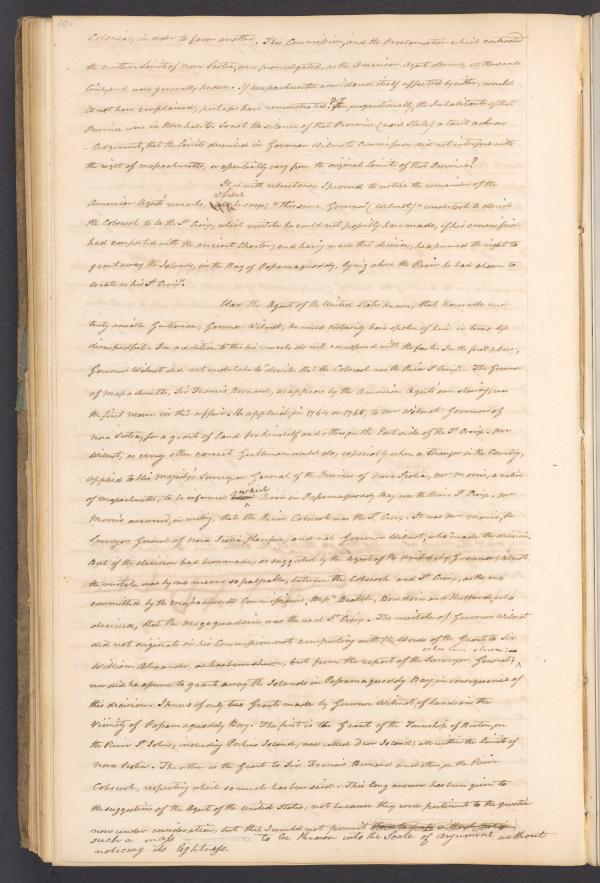 10.
Colonies, in order to favor another. This Commission, and the Proclamation which contracted
the northern Limits of Nova Scotia, were promulgated, as the American Agent observes, at the same
time, and were generally known. If Massachusetts considered itself affected by either, would
it not have complained, perhaps have remonstrated? For, unquestionably, the Inhabitants of that
Province were in those habits. Is not the silence of that Province (now State) a tacit acknow
-ledgement, that the Limits described in Governor Wilmot's Commission did not interfere with
the right of Massachusetts, or essentially vary from the original Limits of that Province?
It is with reluctance I proceed to notice the remainder of the
where
American Agent's remarks, he says; "This same Governor (Wilmot)" undertook to decide
the Cobscook to be the St Croix, which mistake he could not possibly have made, if his commission
had comported with the ancient Charter; and having made that decision, he assumed the right to
grant away the Islands, in the Bay of Passamaquoddy, lying above the River he had chosen to
locate as his St Croix".
Had the Agent of the United States known, that Honorable and
truly amiable Gentleman, Governor Wilmot, he would certainly have spoken of him in terms less
disrespectful. In addition to this his remarks do not correspond with the facts. In the first place,
Governor Wilmot did not undertake to decide that the Cobscook was the River St Croix. The Governor
of Massachusetts, Sir Francis Bernard, as appears by the American Agent's own shewing, was
the first mover in this affair. He applied, in 1764 or 1765, to Mr Wilmot Governor of
Nova Scotia, for a grant of Land for himself and others, on the East side of the St Croix. Mr
Wilmot, as every other correct Gentleman would do, especially when a Stranger in the Country,
applied to His Majesty's Surveyor General of the Province of Nova Scotia, Mr Morris, a native
of Massachusetts, to be informed which River in Passamaquoddy Bay was the River St Croix. Mr
Morris answered, in writing, that the River Cobscook was the St Croix. It was Mr Morris, the
Surveyor General of Nova Scotia, therefore, and not Governor Wilmot, who made the decision.
But if the decision had been made, as suggested by the Agent of the United States, by Governor Wilmot,
the mistake was by no means so palpable, between the Cobscook and St Croix, as the one
committed by the Massachusetts Commissioners, Messrs Brattle, Bowdoin and Hubbard, who
decided, that the Magaguadavic was the real St Croix. The mistake of Governor Wilmot
did not originate in his Commission not comporting with the Words of the Grant to Sir
as has been shewn:
William Alexander, as has been shewn, but from the report of the Surveyor General;
nor did he assume to grant away the Islands in Passamaquoddy Bay, in consequence of
this decision. I know of only two Grants made by Governor Wilmot, of Lands in the
Vicinity of Passamaquoddy Bay. The first is the Grant of the Township of Burton, on
the River St John, including Perkins Island, now called Deer Island; all within the Limits of
Nova Scotia. The other is the Grant to Sir Francis Bernard and others, on the River
Cobscook, respecting which so much has been said. This long answer has been given to
the suggestions of the Agent of the United States, not because they were pertinent to the question
now under consideration, but that I would not permit
such a mass to be thrown into the Scale of argument without
noticing its lightness.